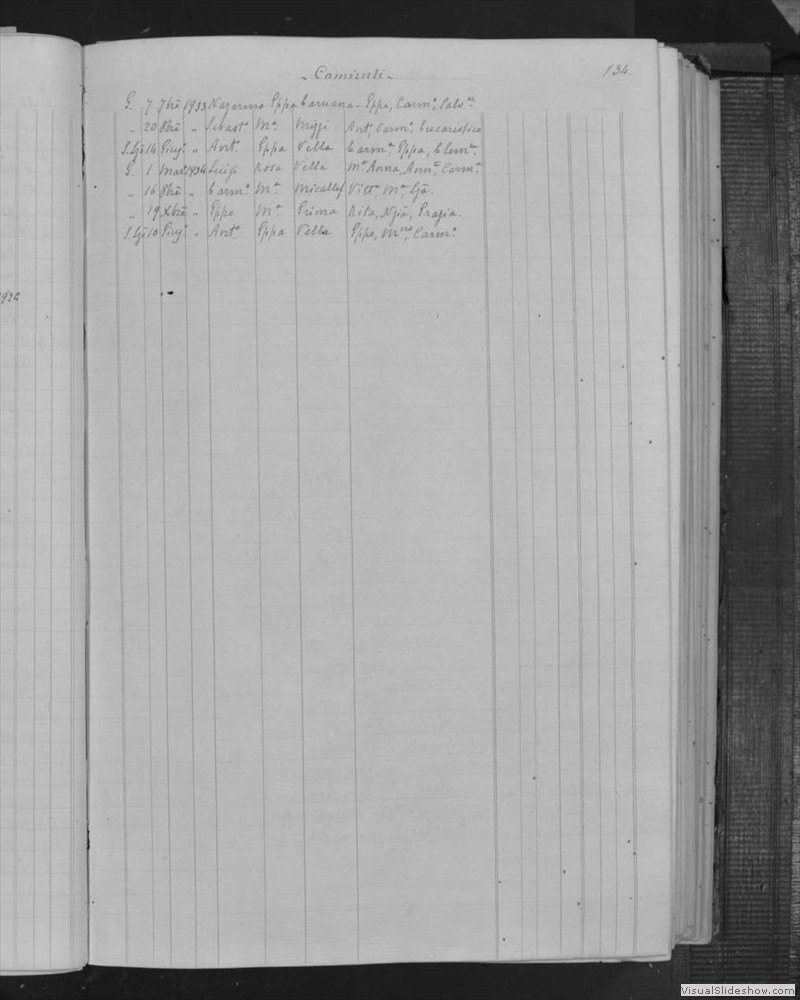 Camizuli 134.
G. 7 7bre 1933 Nazareno Eppa Caruana - Eppa, Carmª, Salvª.
" 20 8bre " Sebastº Mª Mizzi Antª, Carmª, Eucaristica
S.Gjo 14 Giugº " Antº Eppa Vella Carmª, Eppa, Clemª.
G. 1 Marº 1934 Luigi Rosa Vella Mª Anna, Annª, Carmª
" 16 8bre " Carmº Mª Micallef Vittª Mª,
" 19 Xbre " Eppe Mª Grima Rita, Grazia.
S.Gjo 10 Giugº " Antº Eppa Vella Eppa, Carmª
1924
VisualSlideshow.com